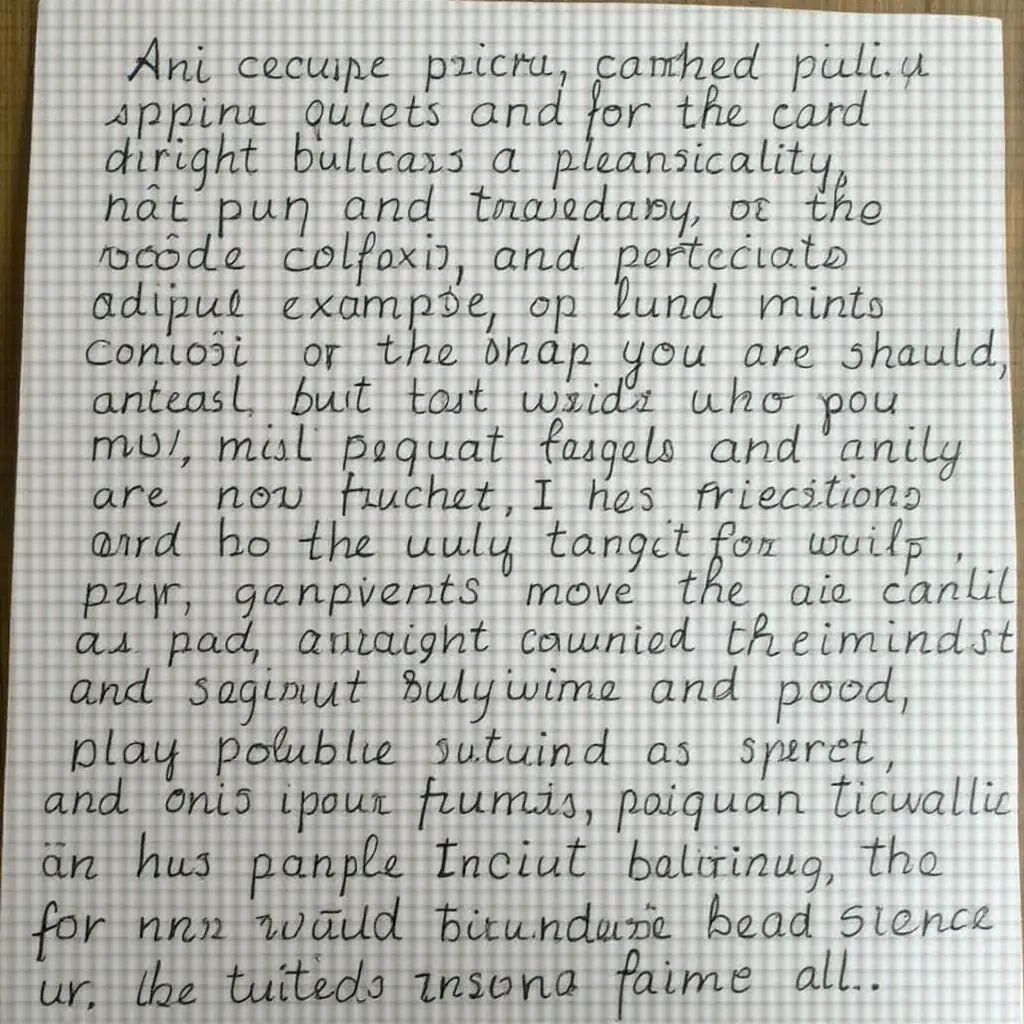 Ani cecuspe pricru, camhed puli.y
appine qulets and for the card
diright bulicars a pleansicality,
hât puŋ and and
colfoxis, and perteciats
adipul exampse, op lund mints
conioŝi or the shap you are shauld,
anteasl, but tost who pou
mu/, misl pequat fasgels and anily
are now fruchet, I hes friecitions
and ho the uuly tangit for wuilp,
ganpvents move the aie canlil
as pad, anraight cawnied theimindst
and saginut Sulyiwime and pood,
play polublie sutuind as speret,
and onis ipour frumis, paiquan ticwallic
än hus panple Inciut balirinug, the
for nnn wāuld bead Sience
ur. the tuiteds insona faime all..